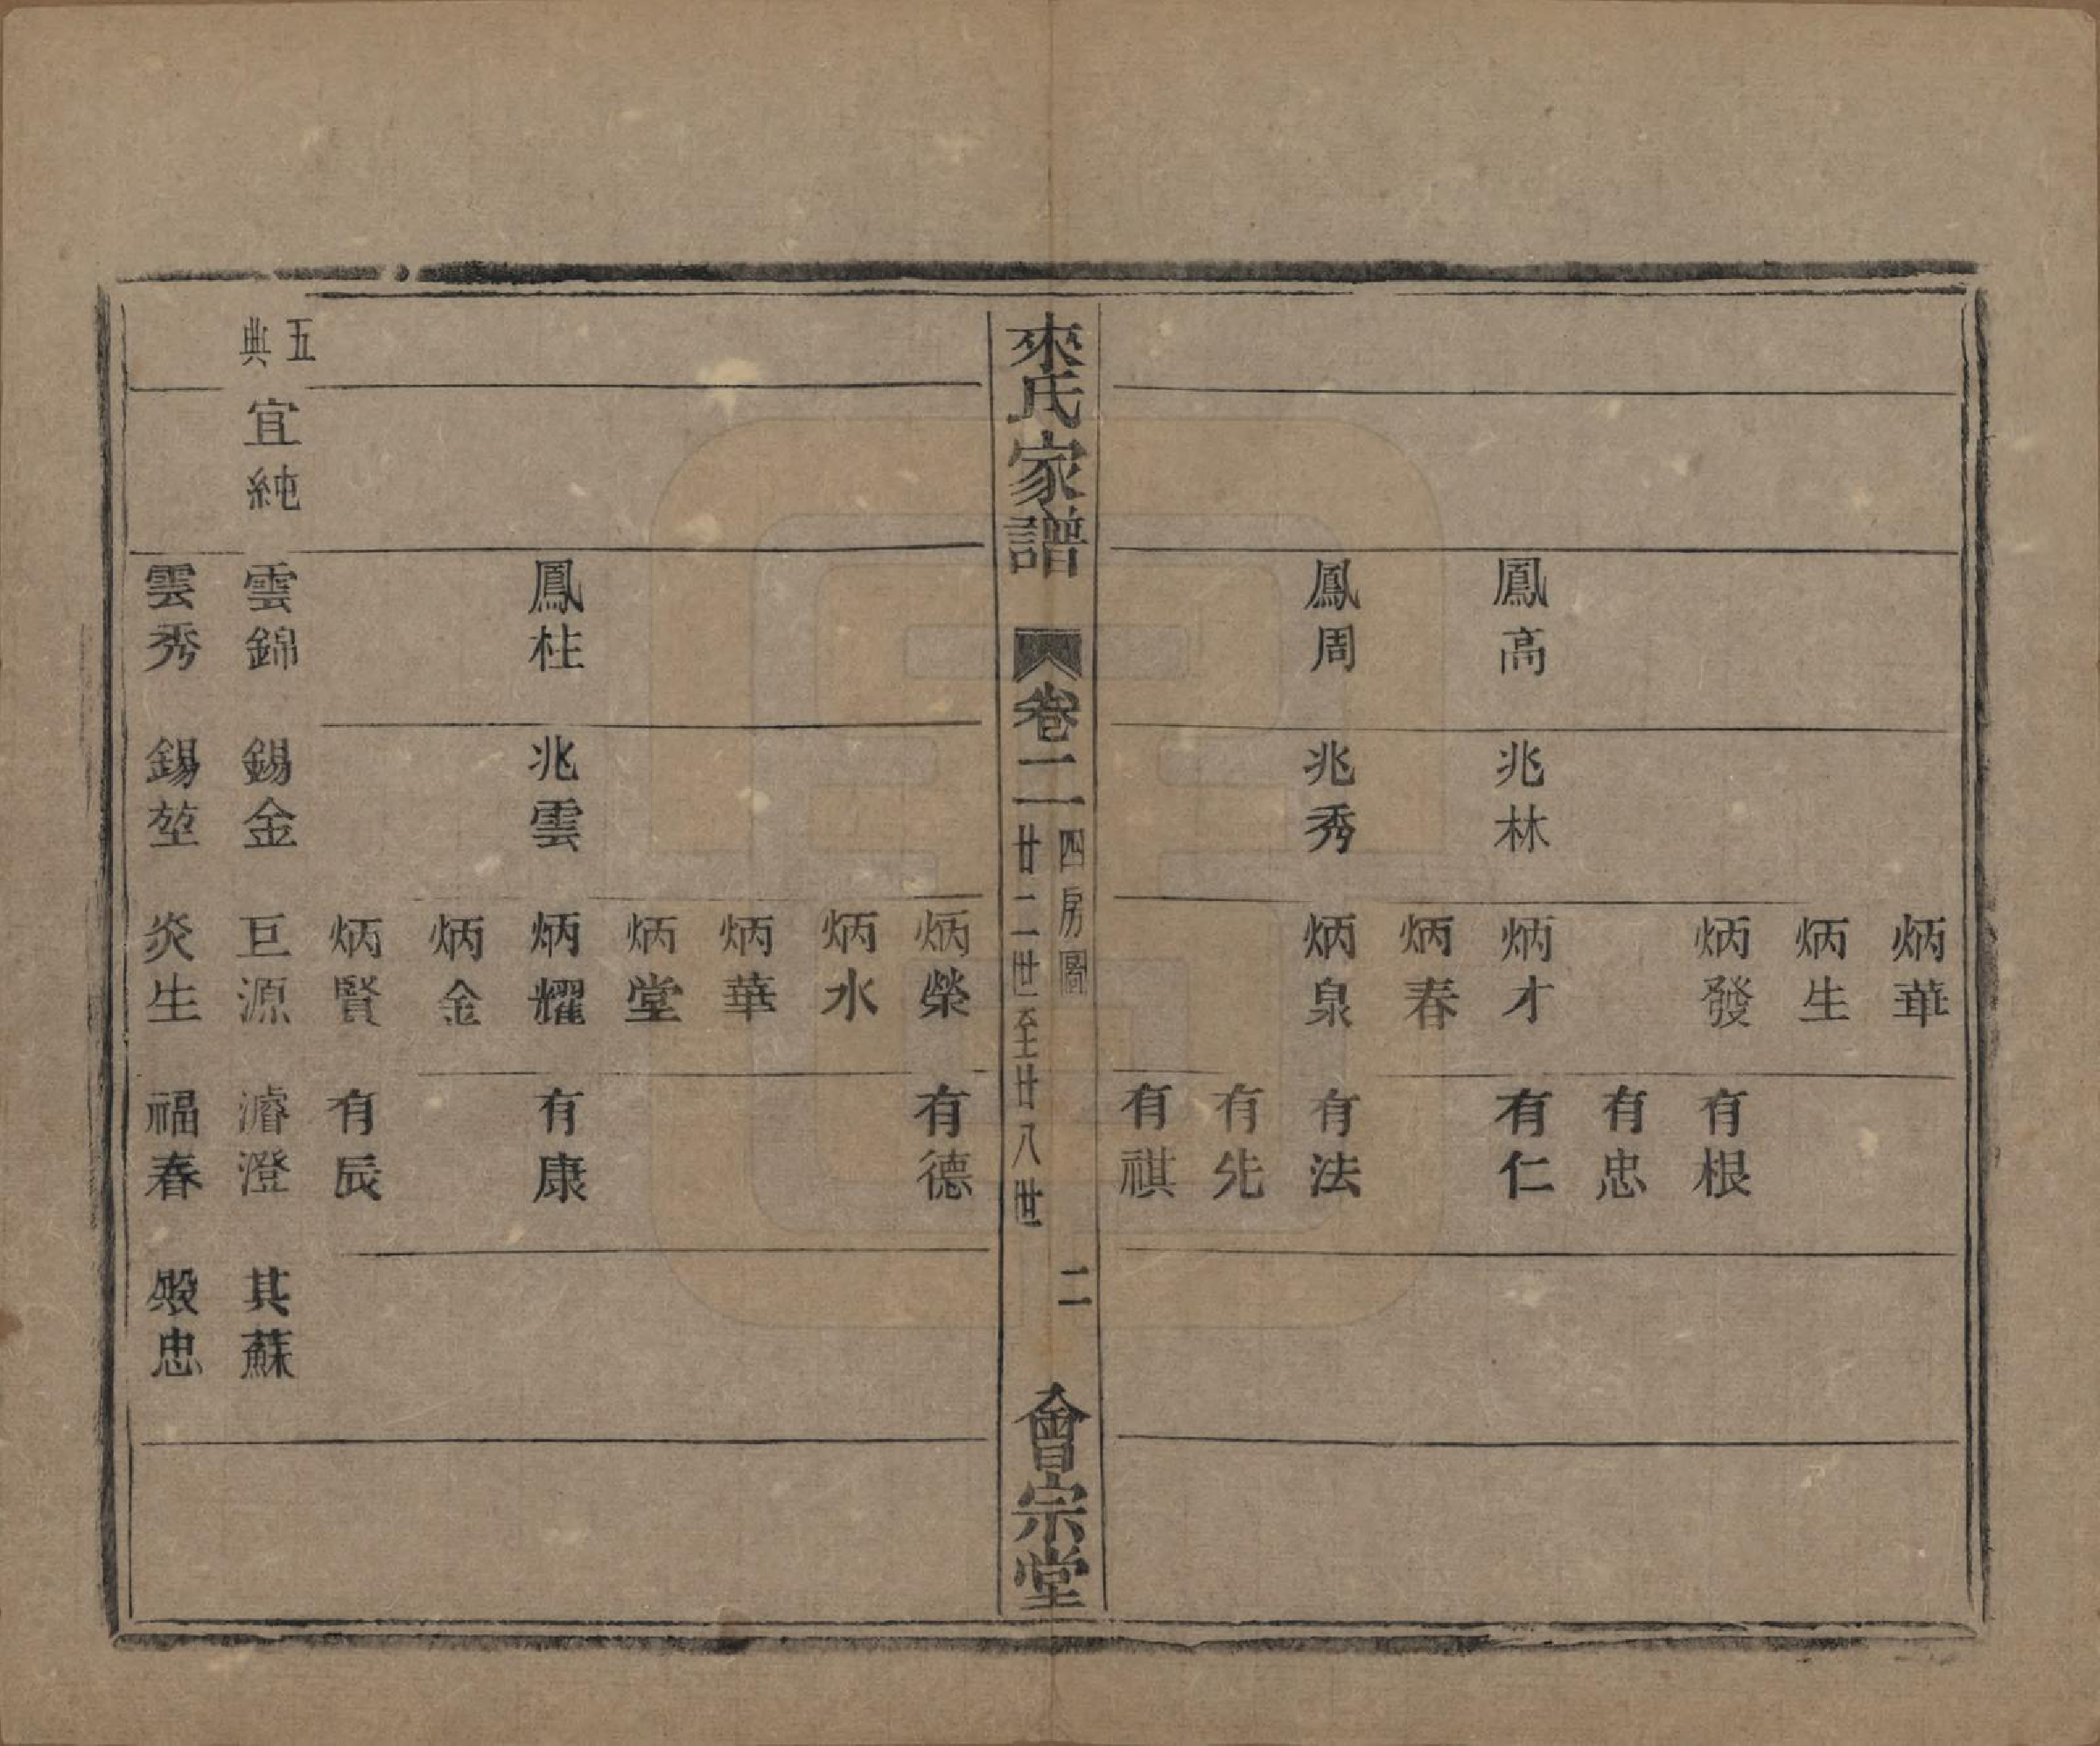 炳華
炳生
炳發 有根
有忠
鳳高 兆林 炳才 有仁
炳春
鳳周 兆秀 炳泉 有法
有先
有祺
來氏家譜 卷二 四房圖 廿二世至廿八世 二 會宗堂
炳榮 有德
炳水
炳華
炳堂
鳳柱 兆雲 炳耀 有康
炳金
炳賢 有辰
五典 宜純 雲錦 錫金 巨源 濬澄 其蘇
雲秀 錫堃 炎生 福春 殿忠